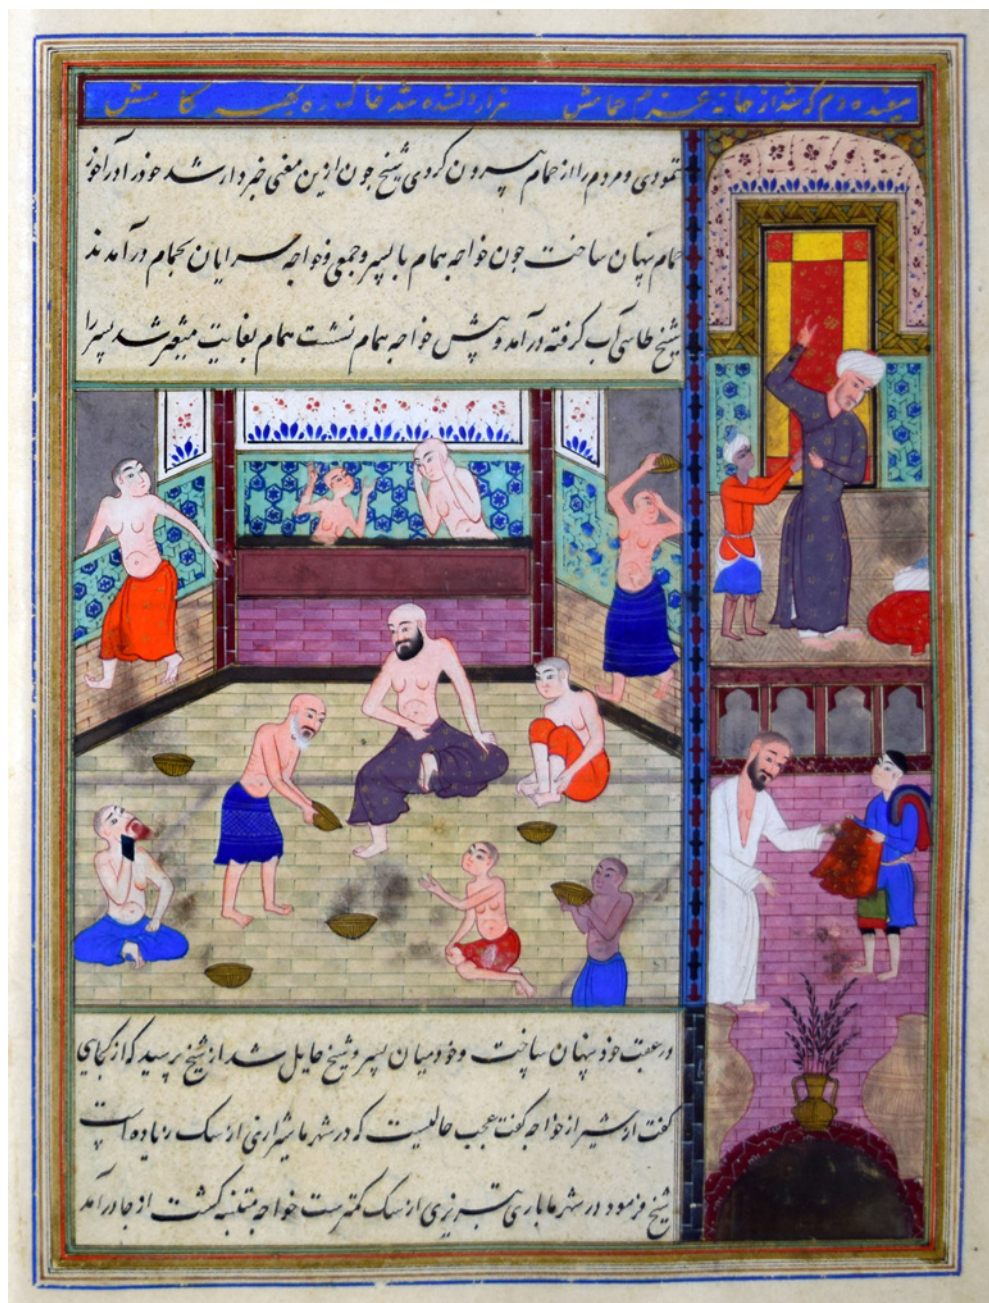 هزار دلشده شد خاک ره بهر
نمودی و مردم را از حمام بیرون کردی شیخ چون ازین معنی خبردار شد خود را در آخر
حمام پنهان ساخت چون خواجه همام با پسر و جمعی خواجه سرایان بحمام درآمدند
شیخ طاسی آب گرفته درآمد و پیش خواجه همام نشست همام بغایت متغیر شد پسر را
در عقب خود پنهان ساخت و خود میان پسر و شیخ حایل شد از شیخ پرسید که از کجایی
گفت از شیراز خواجه گفت عجب حالیست که در شهر ما شیرازی از سک زیاده است
شیخ فرمود در شهر ما باری تبریزی از سک کمترست خواجه متنبه کشت از جا درآمد